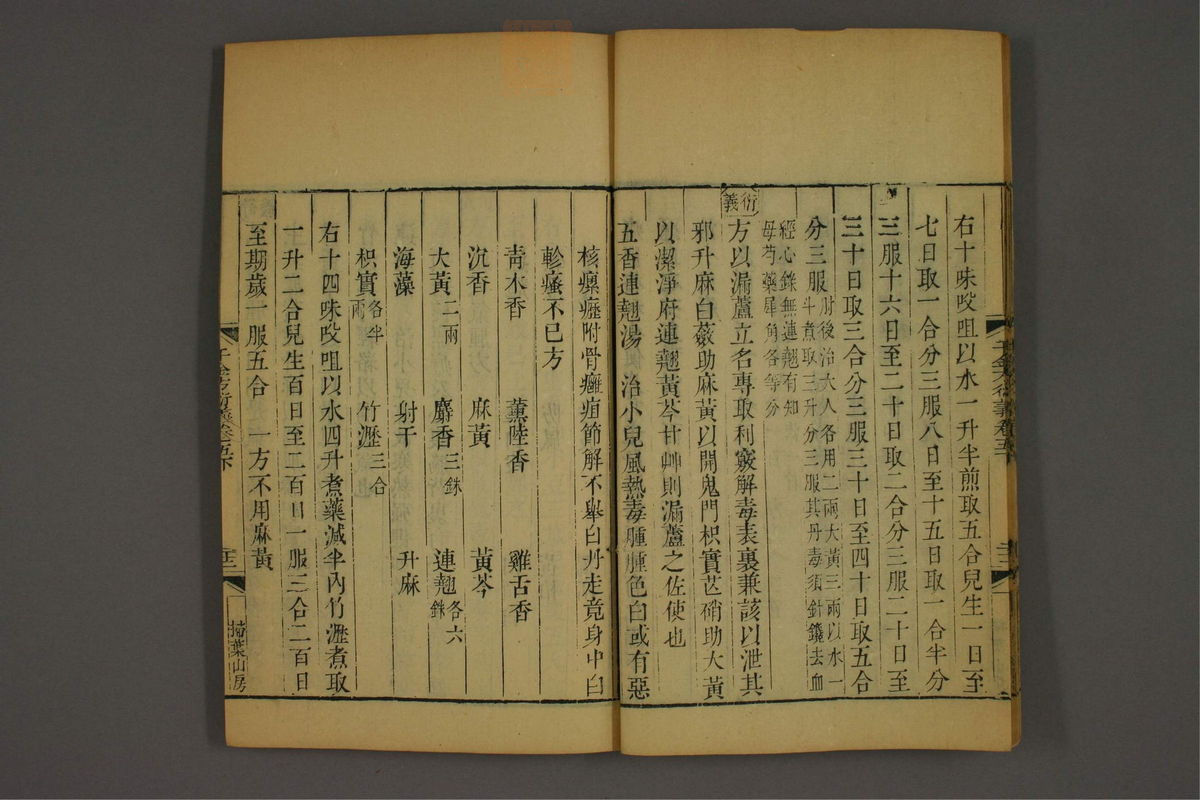 右十味㕮咀以水一升半煎取五合兒生一日至
七日取一合分三服八日至十五日取一合半分
三服十六日至二十日取二合分三服二十日至
三十日取三合分三服三十日至四十日取五合
分三服肘後治大人各用二兩大黃三兩以水一
斗煮取三升分三服其丹毒須針鑱去血
經心錄無連翹有知
母芍藥犀角各等分
衍義
方以漏蘆立名專取利竅解毒表裏兼該以泄其
邪升麻白蘞助麻黃以開鬼門枳實芒硝助大黃
以潔淨府連翹黃芩甘艸則漏蘆之佐使也
五香連翹湯 治小兒風熱毒腫腫色白或有惡
核瘰癧附骨癰疽節解不舉白丹走竟身中白
軫瘙不已方
青木香 薰陸香 雞舌香
沉香 麻黃 黃芩
大黃二兩 麝香三銖 連翹各六銖
海藻 射干 升麻
枳實各半兩 竹瀝三合
右十四味㕮咀以水四升煮藥減半內竹瀝煮取
一升二合兒生百日至二百日一服三合二百日
至期歲一服五合 一方不用麻黃
千金方衍義卷五下
掃葉山房